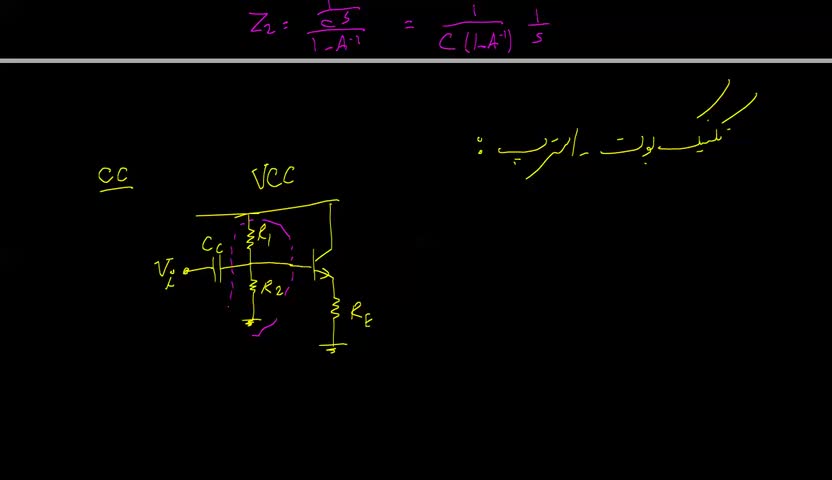 Z₂ = (1/cs)/(1-A⁻¹) = 1/(C(1-A⁻¹)) 1/s
تکنیک بوت - استرپ :
CC
VCC
R₁
C_C
Vᵢ
R₂
R_E